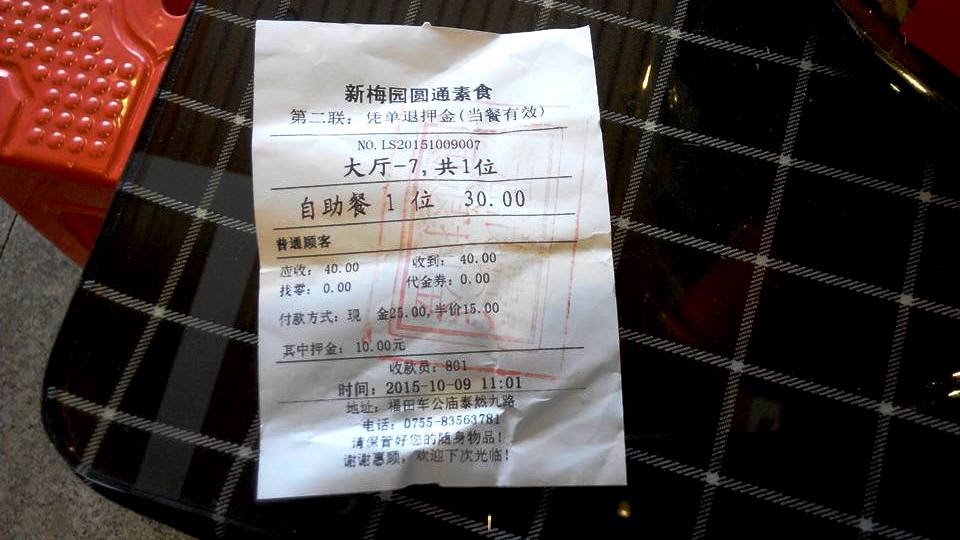 新梅园圆通素食
第二联: 凭单退押金(当餐有效)
NO. LS20151009007
大厅-7, 共1位
自助餐 1 位 30.00
普通顾客
应收: 40.00 收到: 40.00
找零: 0.00 代金券: 0.00
付款方式: 现 金25.00,半价15.00
其中押金: 10.00元
收款员: 801
时间: 2015-10-09 11:01
地址: 福田车公庙泰然九路
电话: 0755-83563781
请保管好您的随身物品!
谢谢惠顾, 欢迎下次光临!